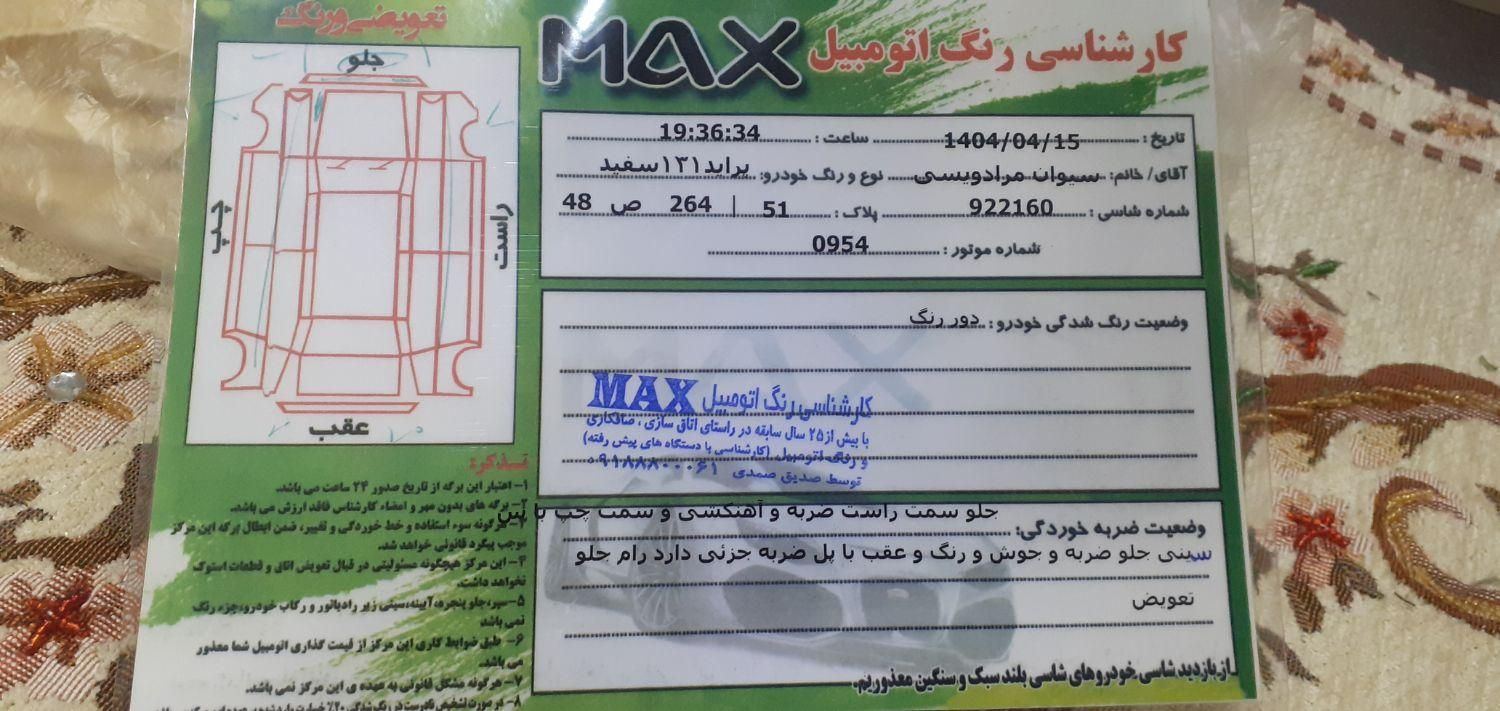 کارشناسی رنگ اتومبیل MAX
تاریخ : 1404/04/15 ساعت : 19:36:34
آقای/ خانم: سیوان مرادویسی نوع و رنگ خودرو: پراید۱۳۱سفید
شماره شاسی : 922160 پلاک : 51 | 264 ص 48
شماره موتور : 0954
وضعیت رنگ شدگی خودرو : دور رنگ
کارشناسی رنگ اتومبیل MAX
با بیش از ۲۵ سال سابقه در راستای اتاق سازی ، صافکاری
و رنگ اتومبیل (کارشناسی با دستگاه های پیش رفته)
توسط صدیق صمدی ۰۹۱۸۸۸۰۰۰۶۱
جلو سمت راست ضربه و آهنکشی و سمت چپ با لبن
وضعیت ضربه خوردگی:
سینی جلو ضربه و جوش و رنگ و عقب با پل ضربه جزئی دارد رام جلو
تعویض
از بازدید شاسی خودروهای شاسی بلند سبک و سنگین معذوریم.
تعویضی و رنگ
جلو
چپ
راست
عقب
تذکر:
۱- اعتبار این برگه از تاریخ صدور ۲۴ ساعت می باشد.
۲- برگه های بدون مهر و امضاء کارشناس فاقد ارزش می باشد.
هرگونه سوء استفاده و خط خوردگی و تغییر، ضمن ابطال برگه این مرکز
موجب پیگرد قانونی خواهد شد.
۴- این مرکز هیچگونه مسئولیتی در قبال تعویض اتاق و قطعات استوک
نخواهد داشت.
۵-سپر،جلو پنجره،آیینه،سینی زیر رادیاتور و رکاب خودرو،جزء رنگ
نمی باشد
۶- طبق ضوابط کاری این مرکز از قیمت گذاری اتومبیل شما معذور
می باشد.
۷- هرگونه مشکل قانونی به عهده ی این مرکز نمی باشد.
۸- در صورت تشخیص نادرست در رنگ شدگی ۲۰٪ خسارت